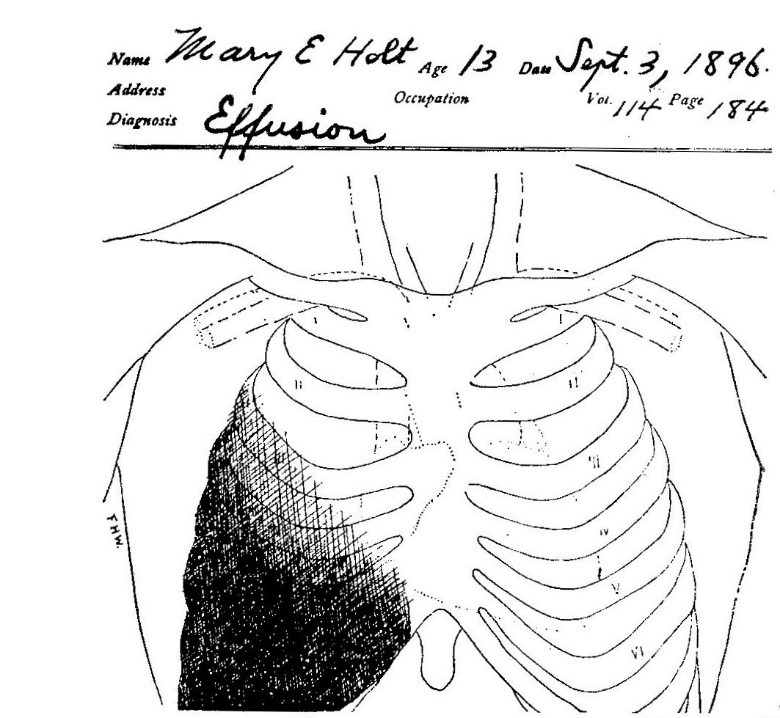 Name Mary E Holt Age 13 Date Sept. 3, 1896.
Address Occupation Vol. 114 Page 184
Diagnosis Effusion
I I
II II
III III
IV
V
VI
F.H.W.